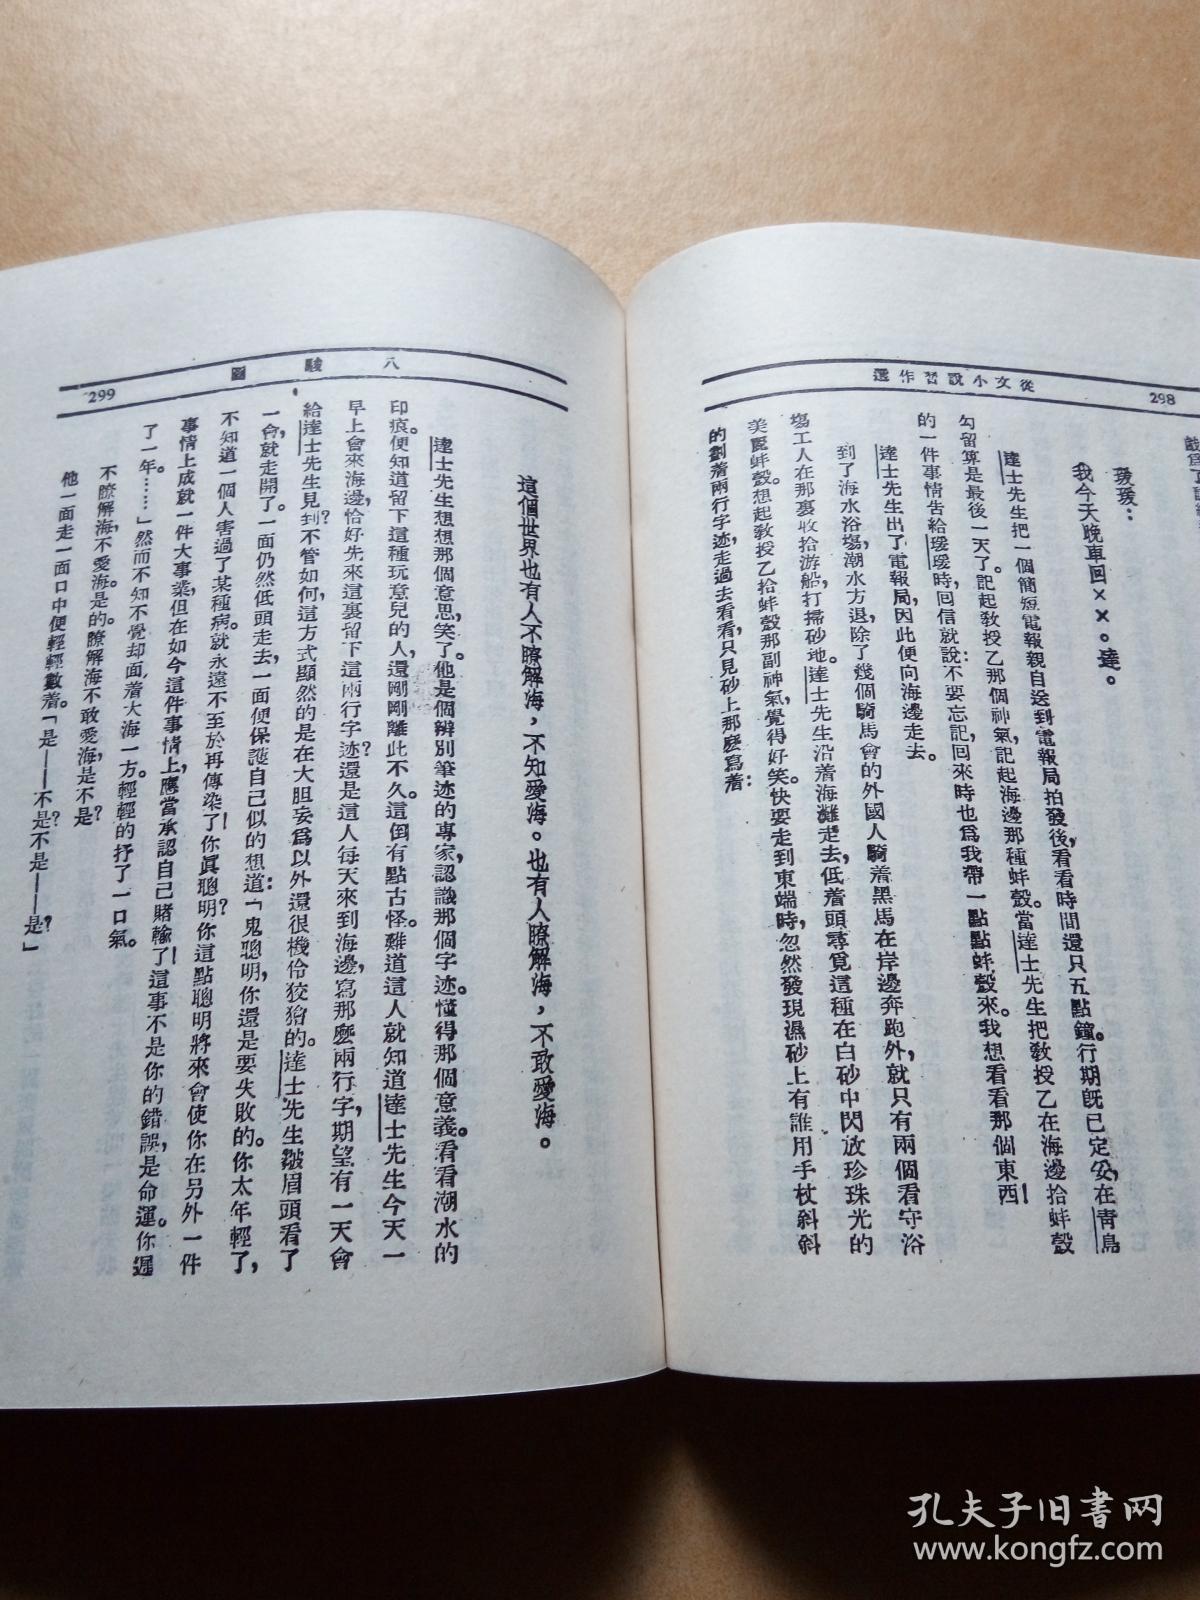 從文小說習作選
298
瑗瑗：
我今天晚車回××。達。
達士先生把一個簡短電報親自送到電報局拍發後，看看時間還只五點鐘。行期旣已定妥，在青島
勾留算是最後一天了。記起敎授乙那個神氣，記起海邊那種蚌殼。當達士先生把敎授乙在海邊拾蚌殼
的一件事情告給瑗瑗時，回信就說：不要忘記，回來時也爲我帶一點點蚌殼來。我想看看那個東西！
達士先生出了電報局，因此便向海邊走去。
到了海水浴塲，潮水方退，除了幾個騎馬會的外國人騎着黑馬在岸邊奔跑外，就只有兩個看守浴
塲工人在那裏收拾游船，打掃砂地。達士先生沿着海灘走去，低着頭尋覓這種在白砂中閃放珍珠光的
美麗蚌殼。想起敎授乙拾蚌殼那副神氣，覺得好笑。快要走到東端時，忽然發現濕砂上有誰用手杖斜斜
的劃着兩行字迹，走過去看看，只見砂上那麽寫着：
八駿圖
299
這個世界也有人不瞭解海，不知愛海。也有人瞭解海，不敢愛海。
達士先生想想那個意思，笑了。他是個辨別筆迹的專家，認識那個字迹。懂得那個意義。看看潮水的
印痕，便知道留下這種玩意兒的人，還剛剛離此不久。這倒有點古怪。難道這人就知道達士先生今天一
早上會來海邊，恰好先來這裏留下這兩行字迹？還是這人每天來到海邊，寫那麽兩行字，期望有一天會
給達士先生見到？不管如何，這方式顯然的是在大胆妄爲以外還很機伶狡猾的。達士先生皺眉頭看了
一會，就走開了。一面仍然低頭走去，一面便保護自己似的想道：「鬼聰明，你還是要失敗的。你太年輕了，
不知道一個人害過了某種病，就永遠不至於再傳染了！你眞聰明？你這點聰明將來會使你在另外一件
事情上成就一件大事業，但在如今這件事情上，應當承認自己賭輸了！這事不是你的錯誤，是命運。你遲
了一年。……」然而不知不覺却面着大海一方，輕輕的抒了一口氣。
不瞭解海，不愛海，是的。瞭解海不敢愛海，是不是？
他一面走一面口中便輕輕數着。「是——不是？不是——是？」
孔夫子旧书网
www.kongfz.com